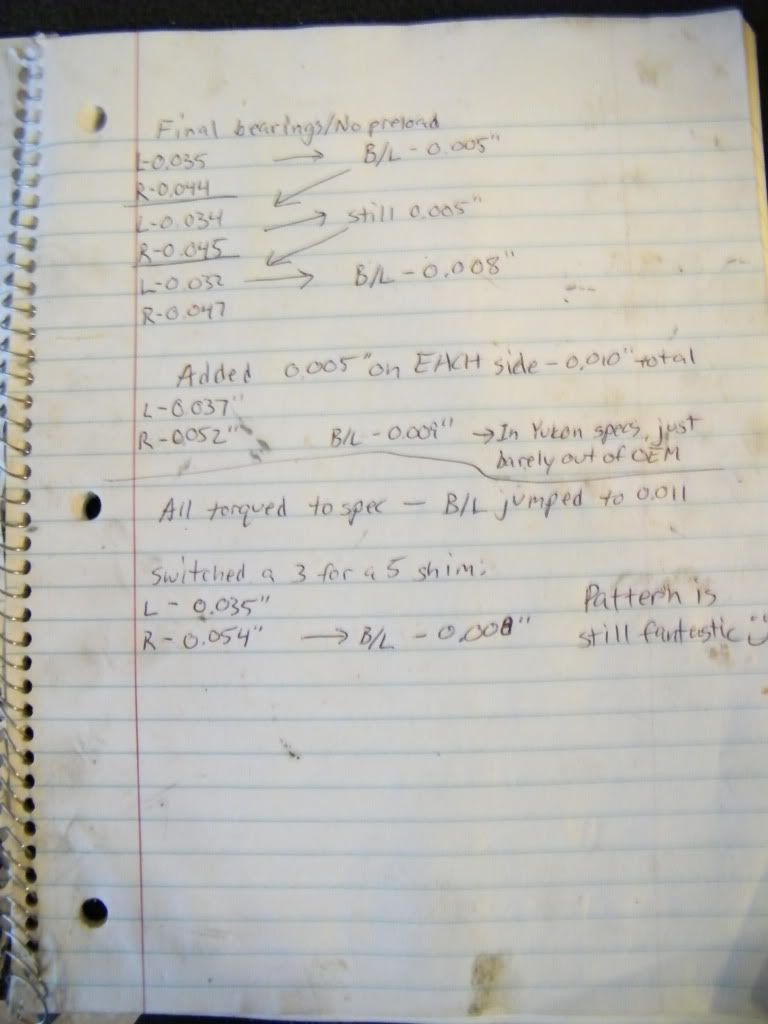 Final bearings/No preload
L-0.035 → B/L - 0.005"
R-0.044
L-0.034 → still 0.005"
R-0.045
L-0.032 → B/L - 0.008"
R-0.047
Added 0.005" on EACH side - 0.010" total
L-0.037"
R-0.052" B/L - 0.009" → In Yukon specs, just
barely out of OEM
All torqued to spec - B/L jumped to 0.011
Switched a 3 for a 5 shim:
L - 0.035" Pattern is
R - 0.054" → B/L - 0.008" still fantastic :)